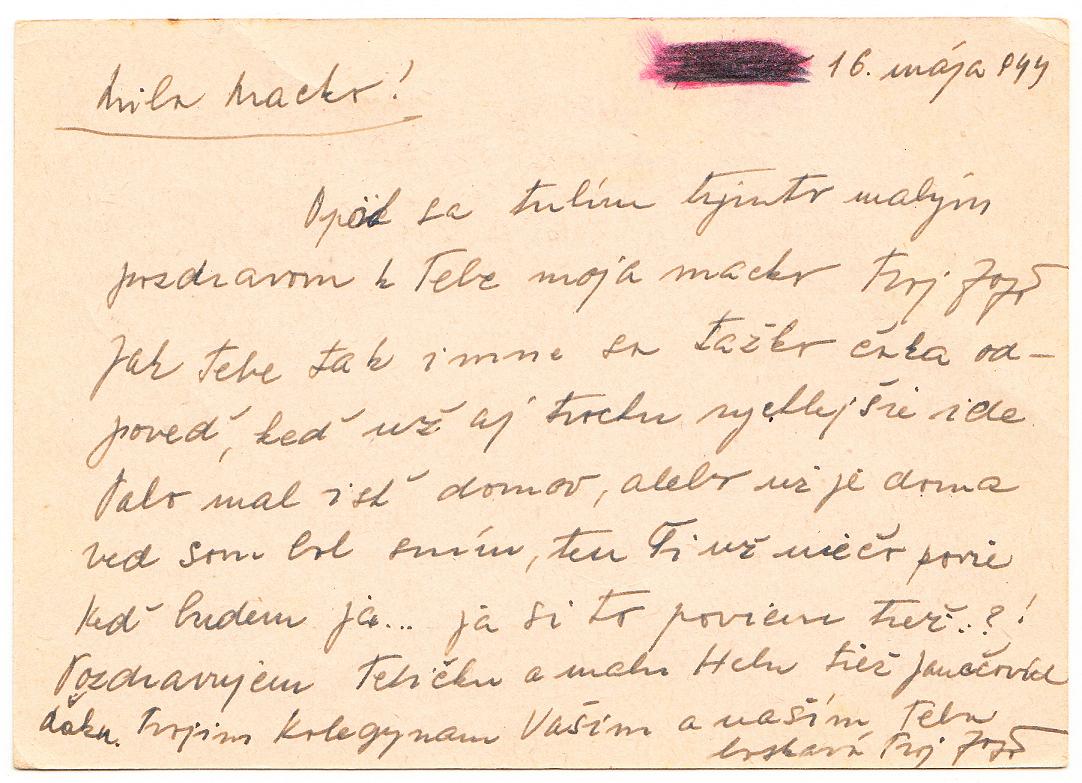 16. mája 944
Milá Macko!
Opäť sa tulím týmto malým
pozdravom k Tebe moja macko Tvoj Jožo
Jak Tebe tak i mne sa ťažko čaká od-
poveď, keď už aj trochu rychlejšie ide
Palo mal isť domov, alebo už je doma
veď som bol sním, ten Ti už niečo povie
Keď budem ja... ja si to poviem tiež..?!
Pozdravujem Tetičku a malu Helu tiež
Tvojim Kolegynam Vašim a našim Teba
bozkáva Tvoj Jožo